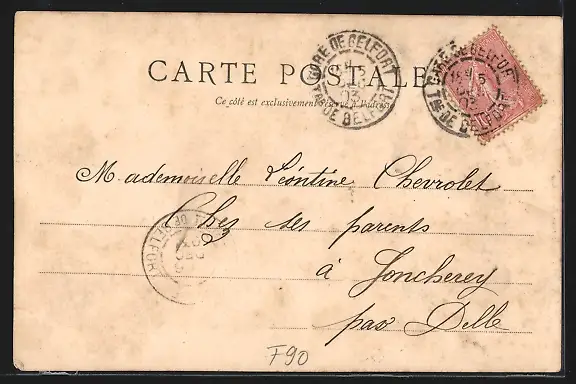 CARTE POSTALE
Ce côté est exclusivement réservé à l'adresse
GARE DE BELFORT
03
Tre DE BELFORT
GARE DE BELFORT
03
Tre DE BELFORT
Mademoiselle Léontine Chevrolet
Chez ses parents
à Joncherey
par Delle
BELFORT
F90